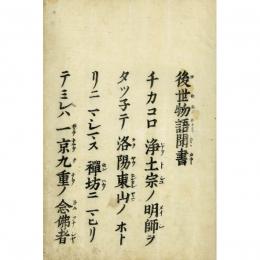 後世物語聞書
チカコロ浄土宗ノ明師ヲ
タツ子テ洛陽東山ノホト
リニマシマス禪坊ニマヒリ
テミレハ一京九重ノ念佛者